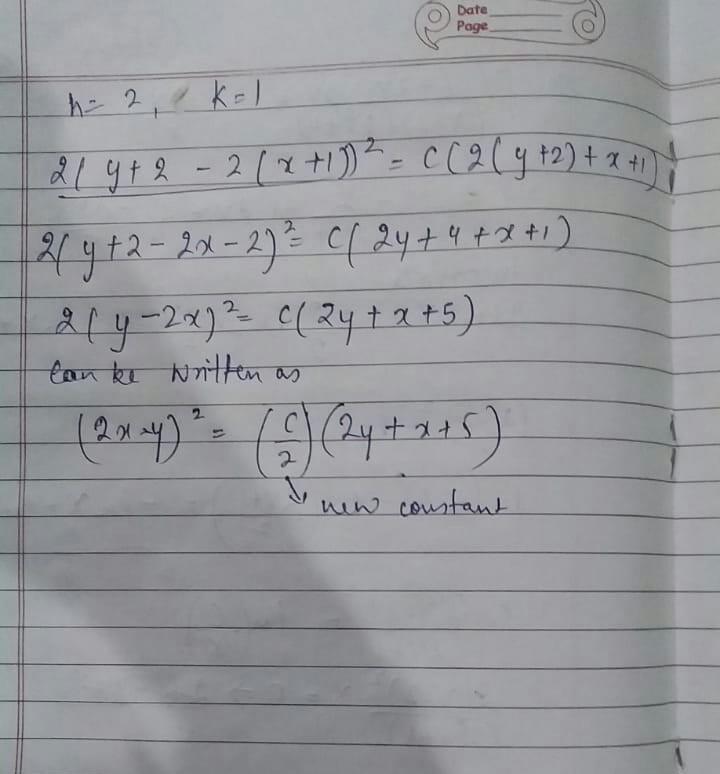 Date
Page
h= 2, k=1
2(y+2 - 2(x+1))² = C(2(y+2)+x+1)
2(y+2-2x-2)² = C(2y+4+x+1)
2(y-2x)² = C(2y+x+5)
Can be written as
(2x-y)² = (C/2)(2y+x+5)
↳ new constant